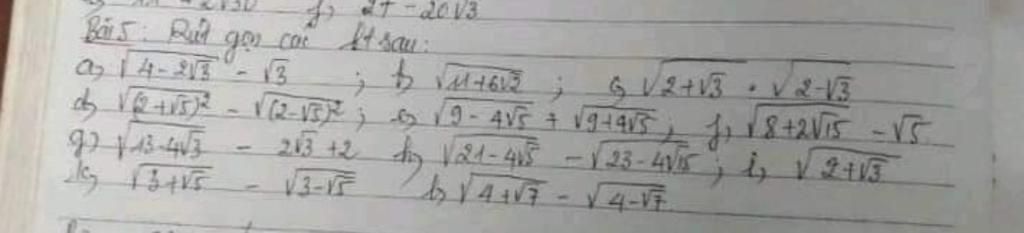 f, 27 - 20√3
Bài 5: Rút gọn các bt sau:
a, √(4-2√3) - √3 ; b, √(11+6√2) ; c, √(2+√3) . √(2-√3)
d, √((2+√5)²) - √((2-√5)²) ; e, √(9-4√5) + √(9+4√5) ; f, √(8+2√15) - √5
g, √(13-4√3) - 2√3 + 2 h, √(21-4√5) - √(23-4√15) ; i, √(2+√3)
k, √(3+√5) - √(3-√5) l, √(4+√7) - √(4-√7)